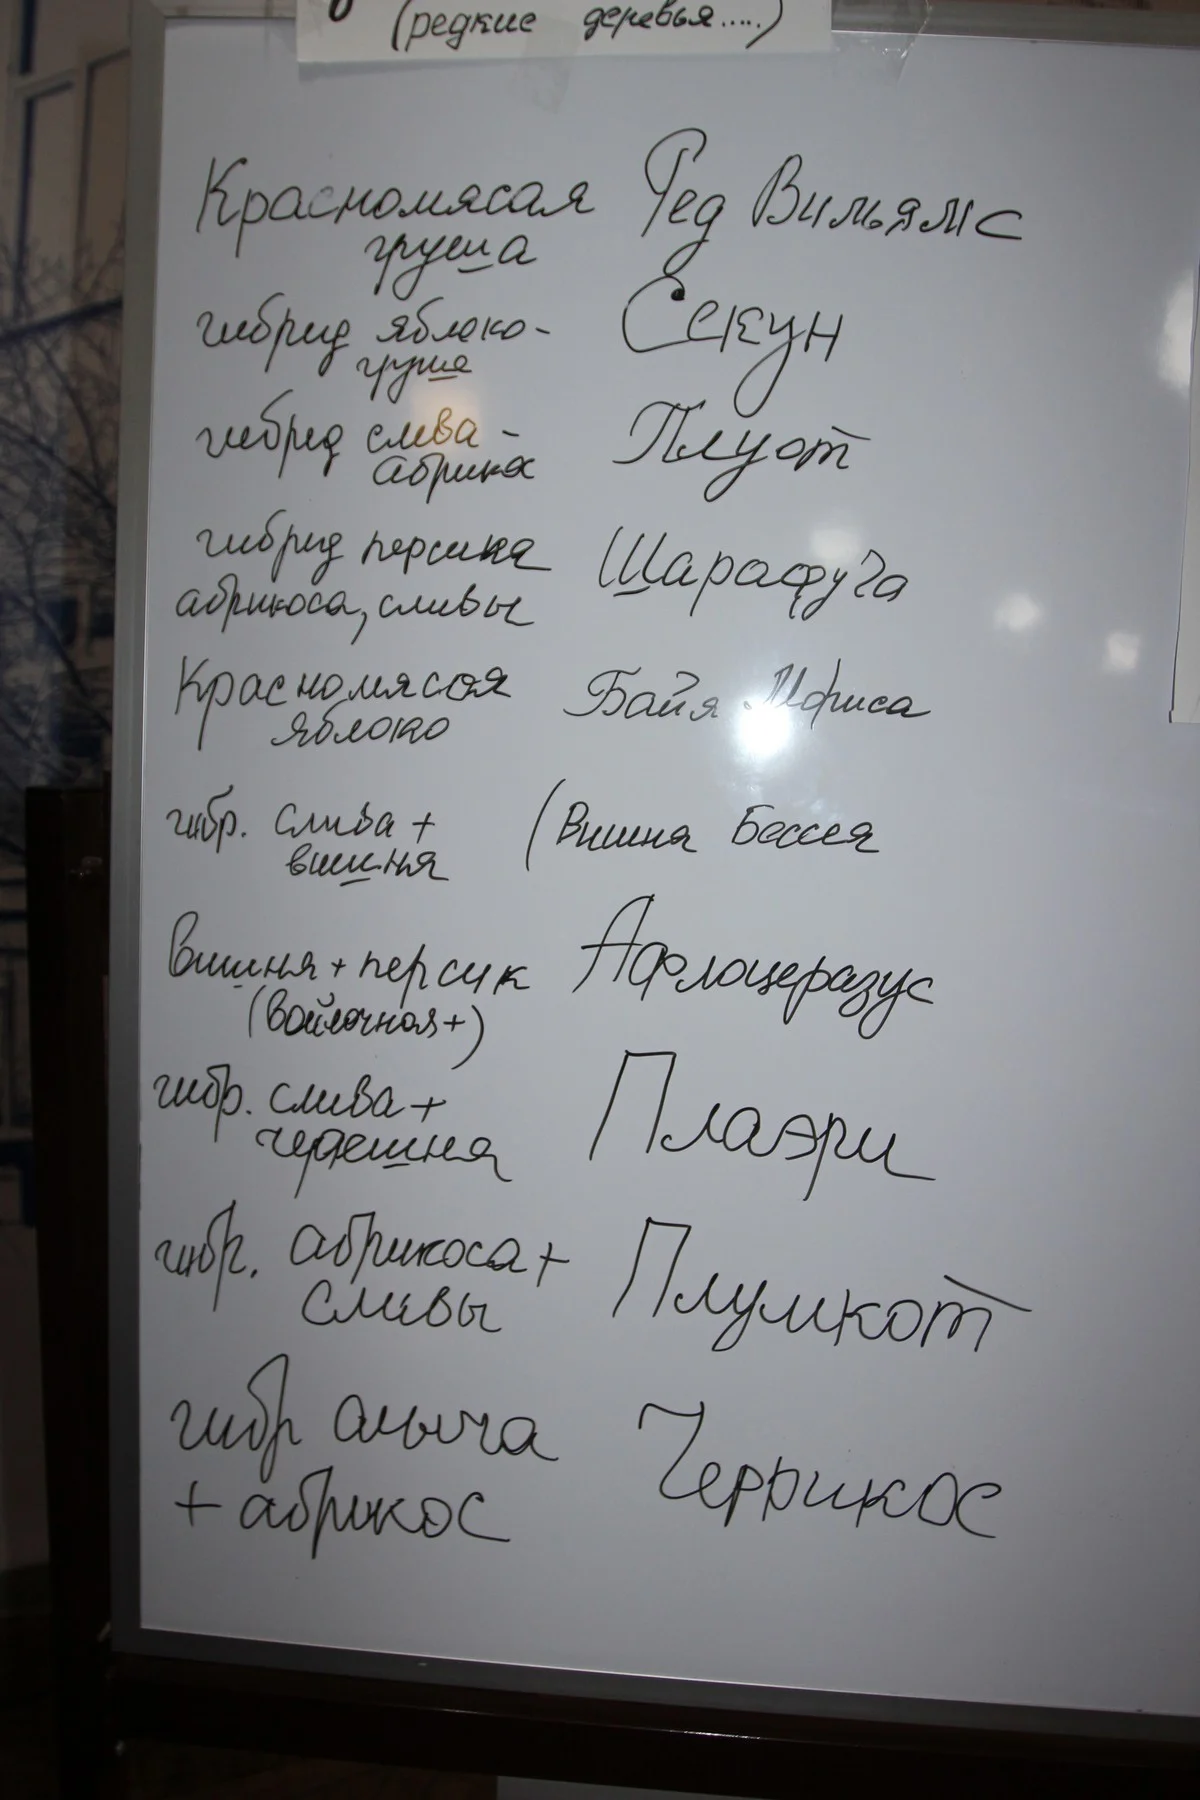 (редкие деревья.....)
Красномясая Ред Вильямс
груша
гибрид яблоко- Секун
груша
гибрид слива- Плуот
абрикос
гибрид персика Шарафуга
абрикоса, сливы
Красномясая Байя Мариса
яблоко
гибр. слива + (Вишня Бессея
вишня
Вишня + персик Афлоцеразус
(войлочная+)
гибр. слива + Плаэри
черешня
гибр. абрикоса + Плумкот
сливы
гибр алыча Черрикос
+ абрикос